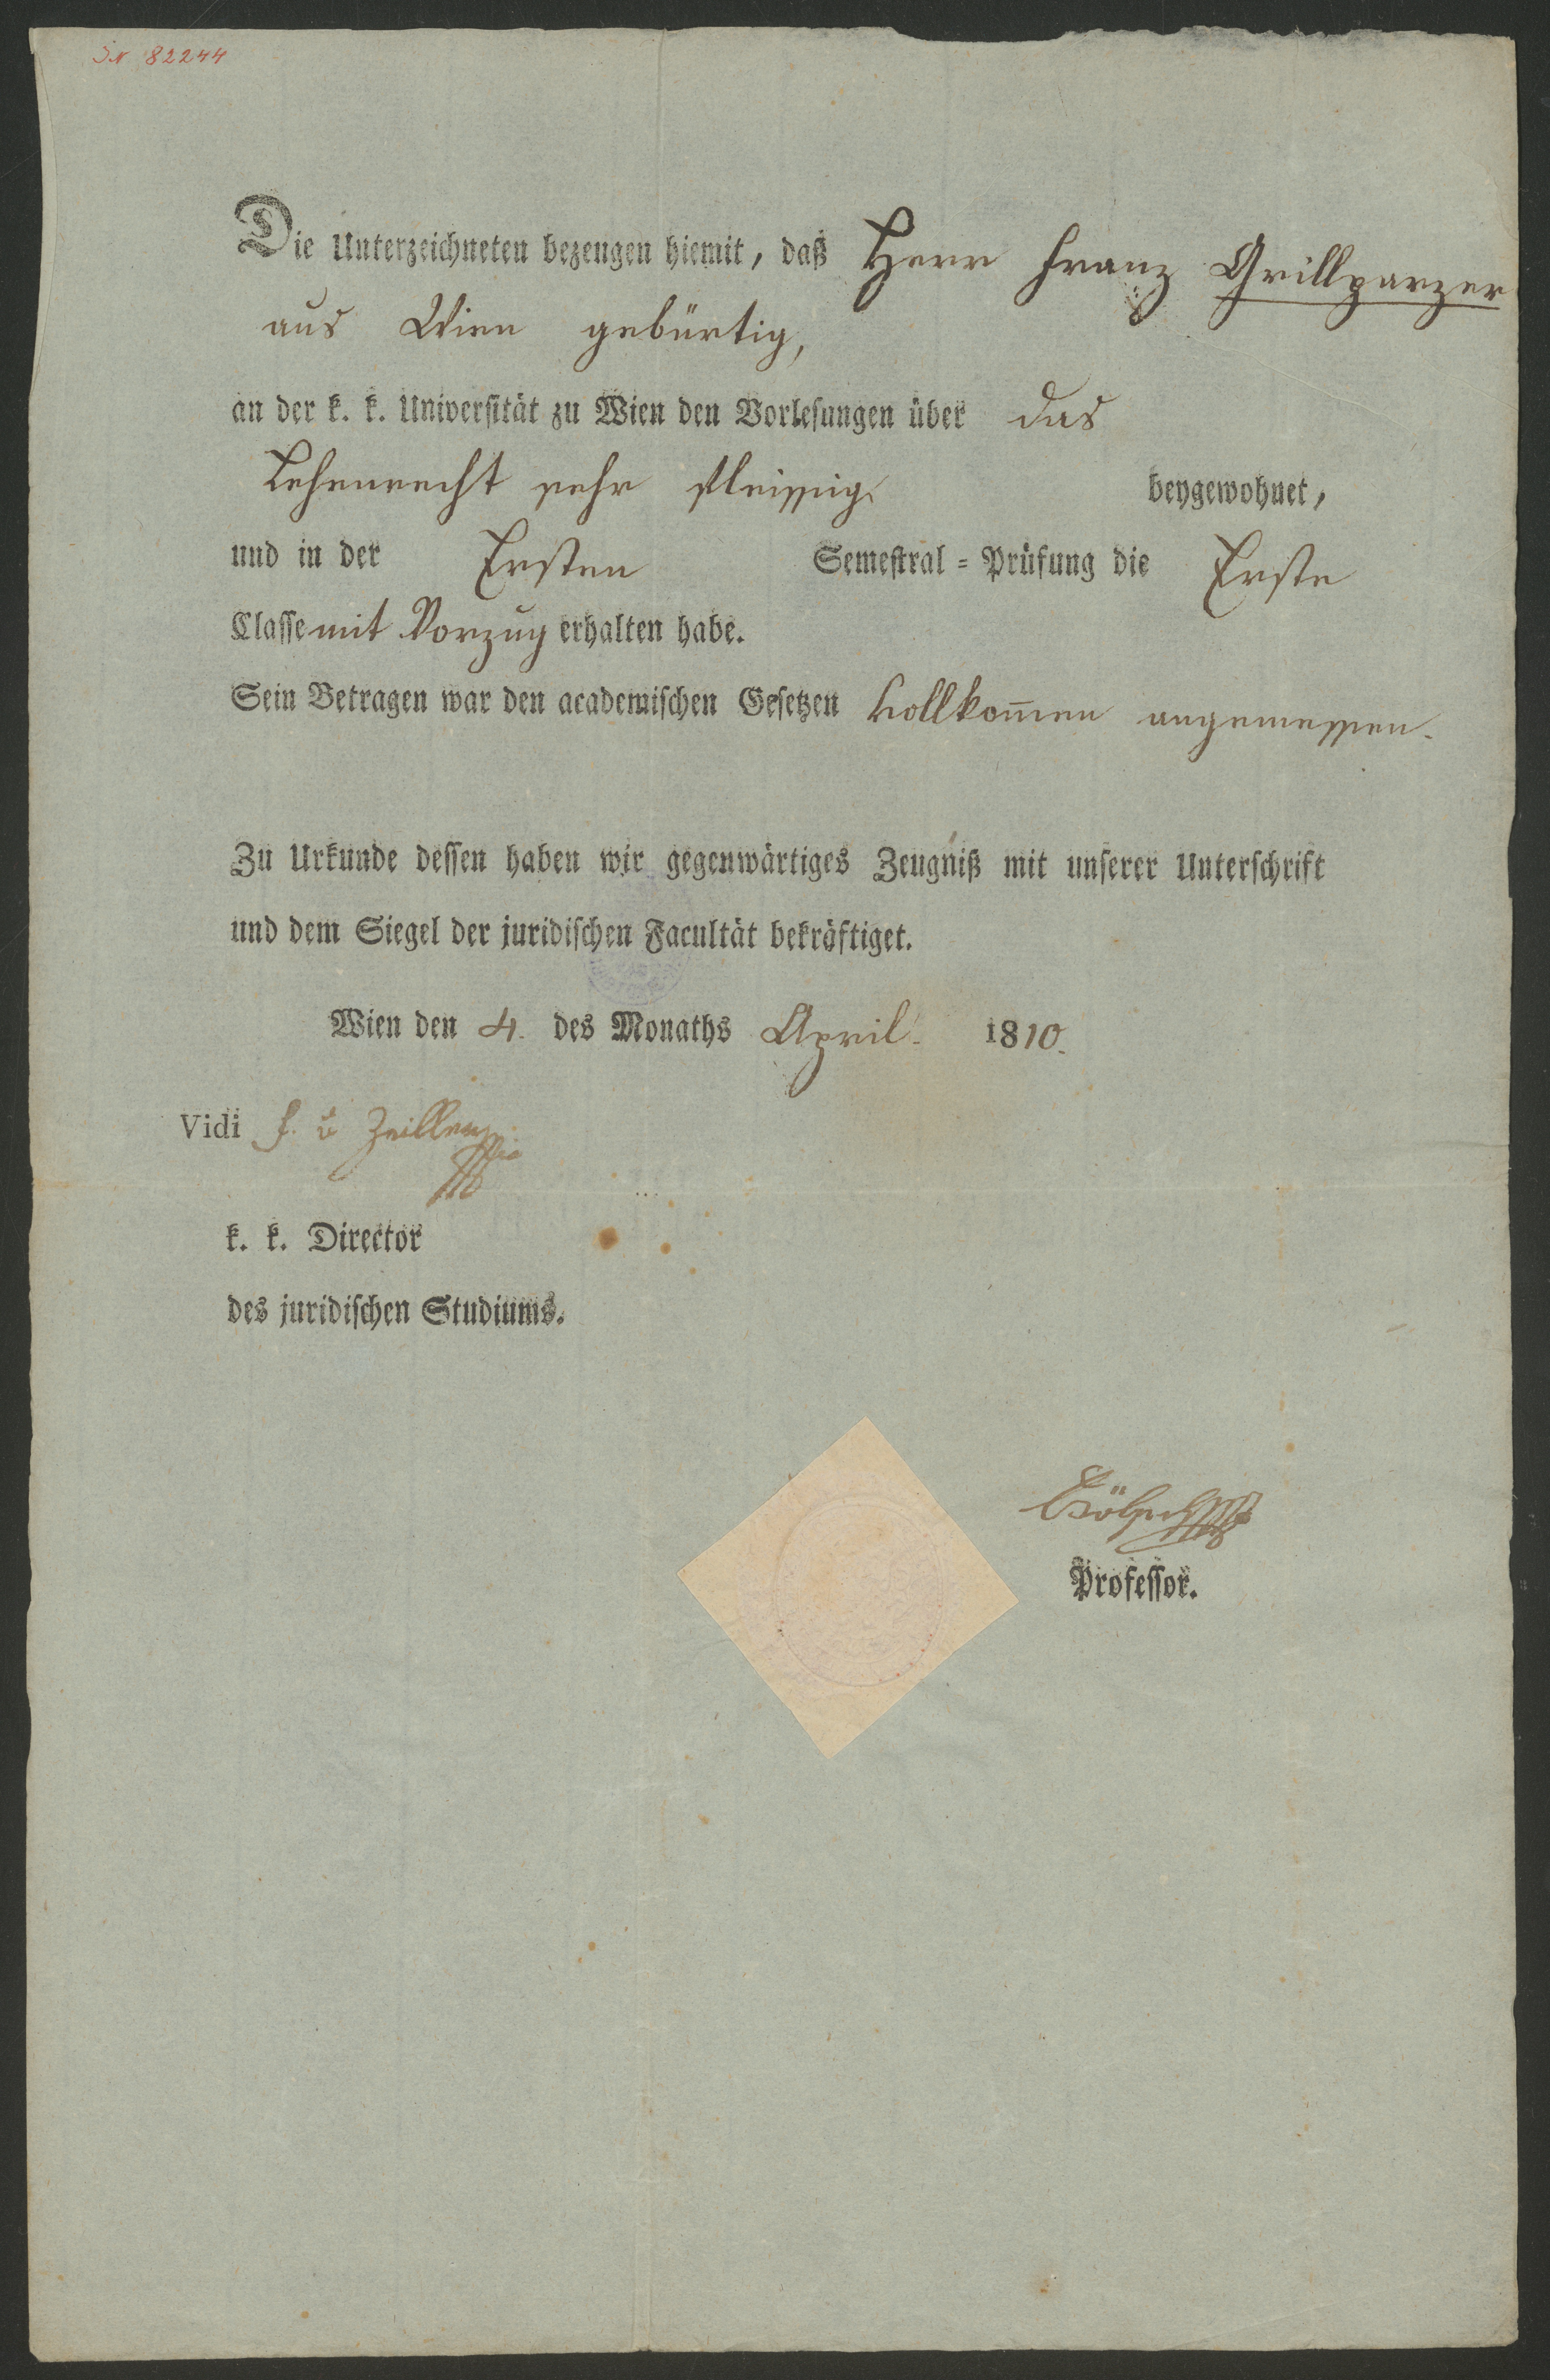 IN 82244
Die Unterzeichneten bezeugen hiemit, daß Herr Franz Grillparzer
aus Wien gebürtig,
an der k. k. Universität zu Wien den Vorlesungen über das
Lehenrecht sehr fleissig beygewohnet,
und in der Ersten Semestral = Prüfung die Erste
Classe mit Vorzug erhalten habe.
Sein Betragen war den academischen Gesetzen vollkom̄en angemessen.
Zu Urkunde dessen haben wir gegenwärtiges Zeugniß mit unserer Unterschrift
und dem Siegel der juridischen Facultät bekräftiget.
Wien den 4. des Monaths April. 1810.
Vidi F. v Zeiller
k. k. Director
des juridischen Studiums.
Professor.